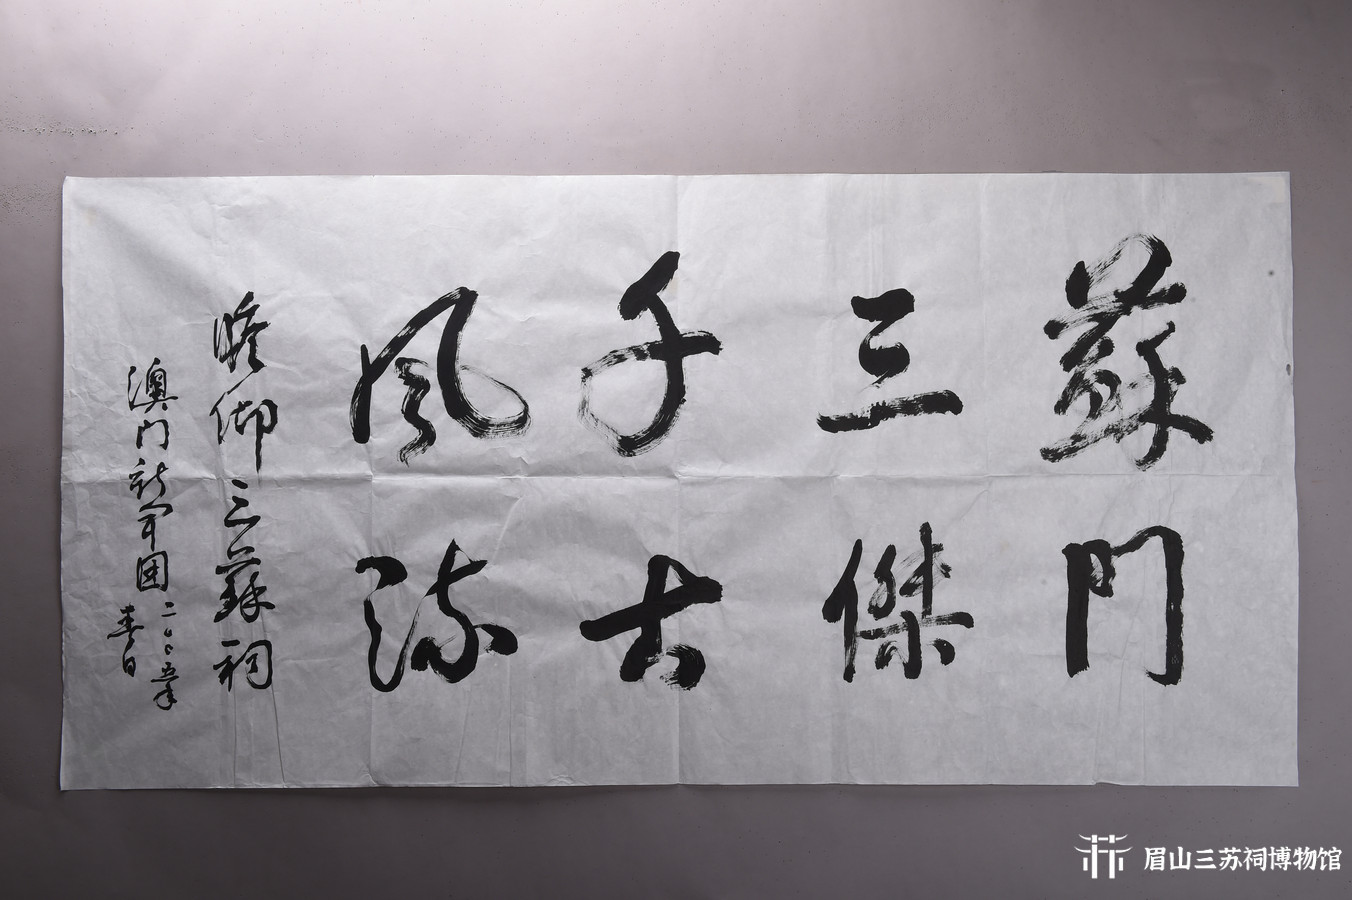 蘇門
三傑
千古
風流
瞻仰三蘇祠
澳門新軍團
二〇〇五年
春日
眉山三苏祠博物馆